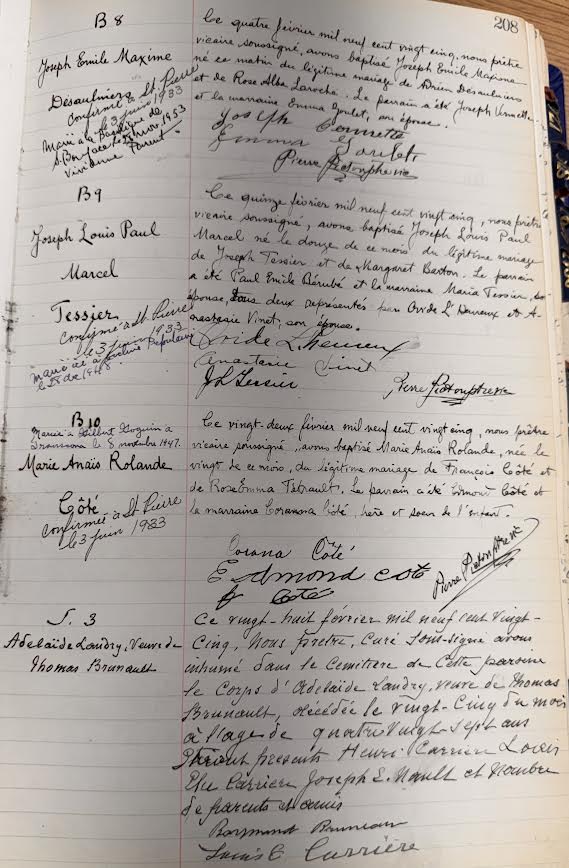 208
B 8
Joseph Emile Maxime
Desaulniers
Confirmé à St Pierre
le 3 juin 1933
Marié à la Basilique de
St. Boniface le nov. 1953
Vivianne Parent
Ce quatre février mil neuf cent vingt cinq, nous prêtre
vicaire soussigné, avons baptisé Joseph Emile Maxime
né ce matin du légitime mariage de Adrien Desaulniers
et de Rose Alba Laroche. Le parrain a été Joseph Vermette
et la marraine Emma Goulet, son épouse.
Joseph Vermette
Emma Goulet
Pierre Picton ptre vic
B 9
Joseph Louis Paul
Marcel
Tessier
Confirmé à St Pierre
le 3 juin 1933
Marié ici à
le 28 dec 1948.
Ce quinze février mil neuf cent vingt cinq, nous prêtre
vicaire soussigné, avons baptisé Joseph Louis Paul
Marcel né le douze de ce mois du légitime mariage
de Joseph Tessier et de Margaret Barton. Le parrain
a été Paul Emile Bérubé et la marraine Maria Tessier, son
épouse, tous deux représentés par Ovide L'Heureux et A-
nastasie Vinet, son épouse.
Ovide L'heureux
Anastasie Vinet
J L Tessier
Pierre Picton ptre vic
B 10
Mariée à Gilbert à
Transcona le 8 novembre 1947.
Marie Anaïs Rolande
Côté
Confirmée à St Pierre
le 3 juin 1933
Ce vingt-deux février mil neuf cent vingt cinq, nous prêtre
vicaire soussigné, avons baptisé Marie Anaïs Rolande, née le
vingt de ce mois, du légitime mariage de François Côté et
de Rose Emma Tétrault. Le parrain a été Edmond Côté et
la marraine Coranna Côté, frère et soeur de l'enfant.
Corana Côté
Edmond Coté
f Coté
Pierre Picton ptre vic
S. 3
Adelaïde Landry, Veuve de
Thomas Brunault
Ce vingt-huit février mil neuf cent vingt-
cinq, Nous prêtre, Curé Sous-signé avons
inhumé dans le Cimetière de Cette paroisse
le Corps d'Adelaïde Landry, Veuve de Thomas
Brunault, décédée le vingt-cinq du mois
à l'age de quatre Vingt-Sept ans
Etaient presents Henri Carrière Louis
Carrière Joseph E. Nault et Nombre
de parents et amis
Raymond Bruneau
Louis E Carrière